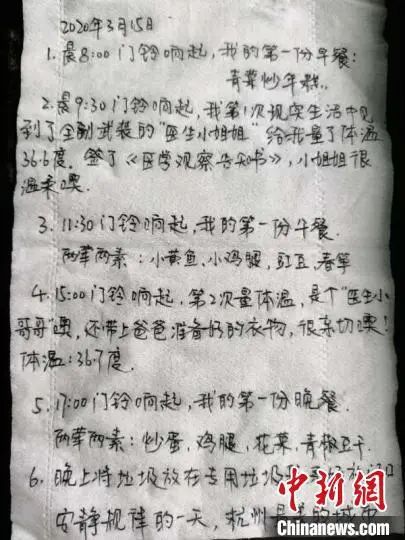 2020年3月15日
1.晨8:00门铃响起,我的第一份早餐:
青菜炒年糕。
2.晨9:30门铃响起,我第1次现实生活中见
到了全副武装的"医生小姐姐"给我量了体温
36.6度。签了《医学观察告知书》,小姐姐很
温柔噢。
3. 11:30门铃响起,我的第一份午餐.
两荤两素:小黄鱼、小鸡腿、豇豆、春笋
4. 15:00门铃响起,第2次量体温,是个"医生小
哥哥"噢,还带上爸爸准备好的衣物,很亲切噢!
体温:36.7度.
5. 17:00门铃响起,我的第一份晚餐.
两荤两素:炒蛋、鸡腿、花菜、青椒豆干
6、晚上将垃圾放在专用垃圾
安静规律的一天,杭州是
中新网
www.chinanews.com